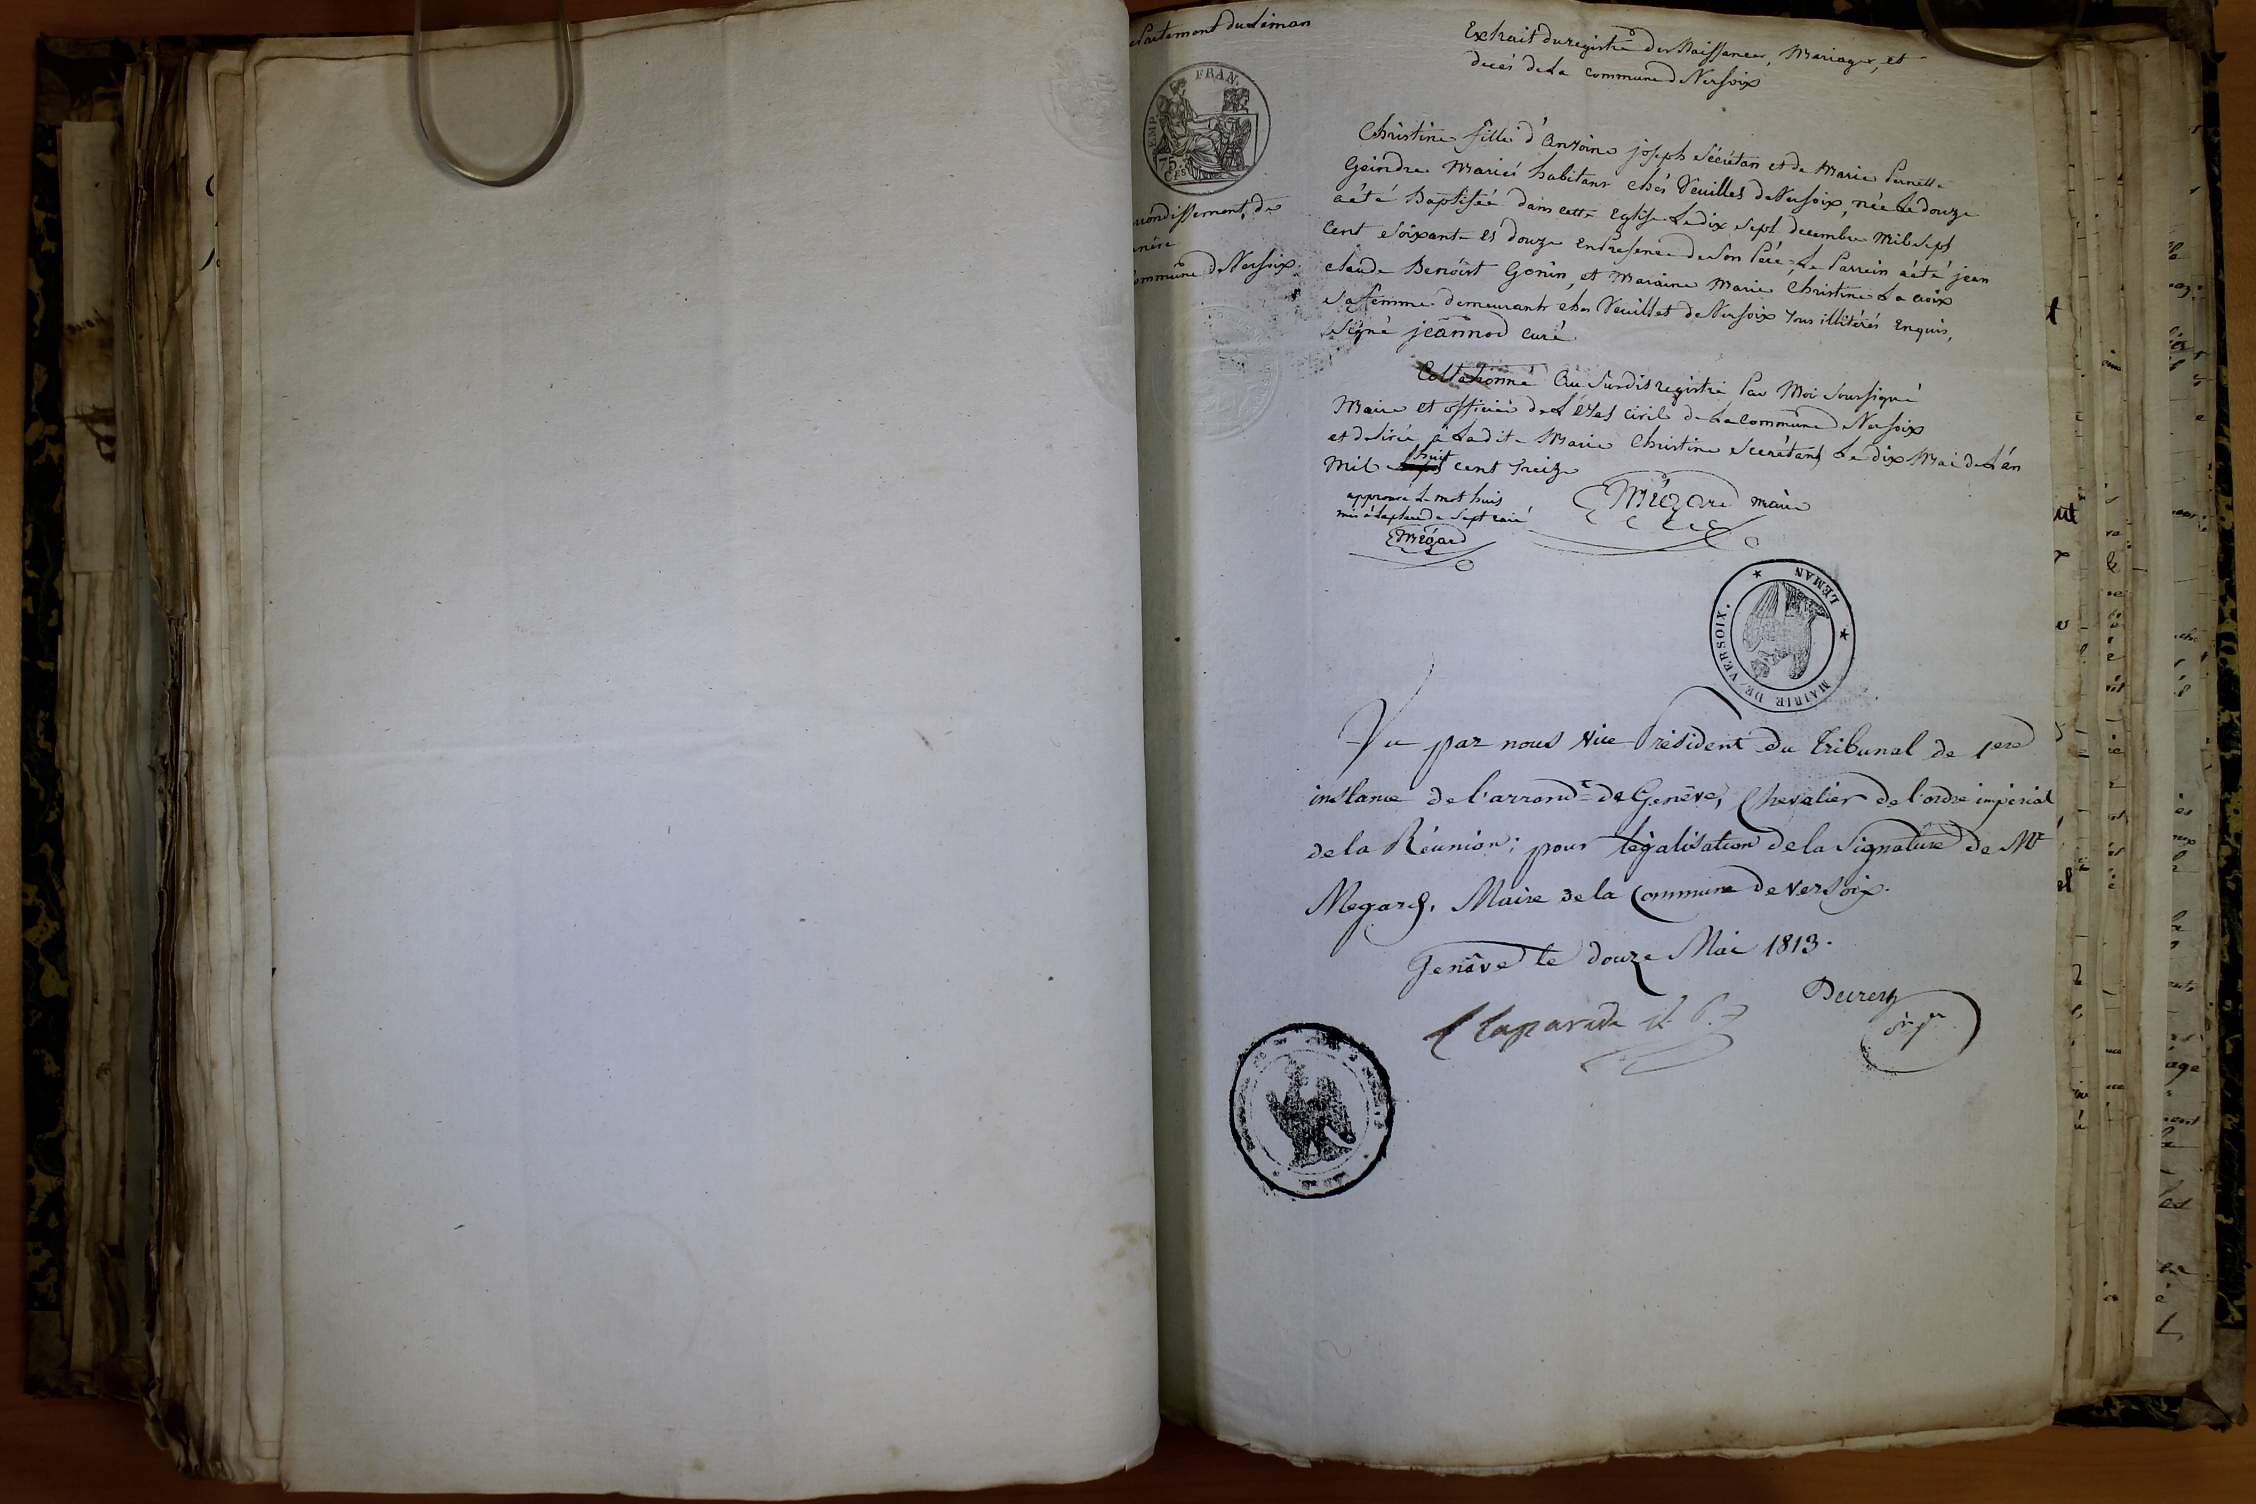 partement du Léman
EMP. FRAN.
75
Ces
rondissement de
commune de Versoix.
Extrait du registre des Naissances, Mariages, et
decés de la commune de Versoix
Christine fille d'Antoine joseph Sécrétan et de Marie Pernette
Geindre Mariés habitant chés Veuillet de Versoix, née le douze
a été Baptisée dans cette Eglise le dix sept decembre mil sept
Cent soixante et douze en presence de son Pére, Le Parrein a été jean
claude Benoist Gonin, et Maraine Marie Christine La croix
sa femme demeurants ches Veuillet de Versoix tous illitérés Enquis,
signé jeannod curé
Collationné au susdit registre Par Moi soussigné
Maire et officier de L'état civil de La commune de Versoix
et delivré à Ladite Marie Christine Secrétan, Le dix Mai de L'an
Mil huit cent treize
approuvé Le mot huit
mis à la place de sept raié
Mégard
Mégard maire
MAIRIE DE VERSOIX. LEMAN
Vu par nous vice Président du Tribunal de 1ere
instance de l'arrondt de Genève, Chevalier de l'ordre impérial
de la Réunion; pour légalisation de la Signature de Mr
Megard, Maire de la Commune de Versoix.
Genève le douze Mai 1813.
Claparede